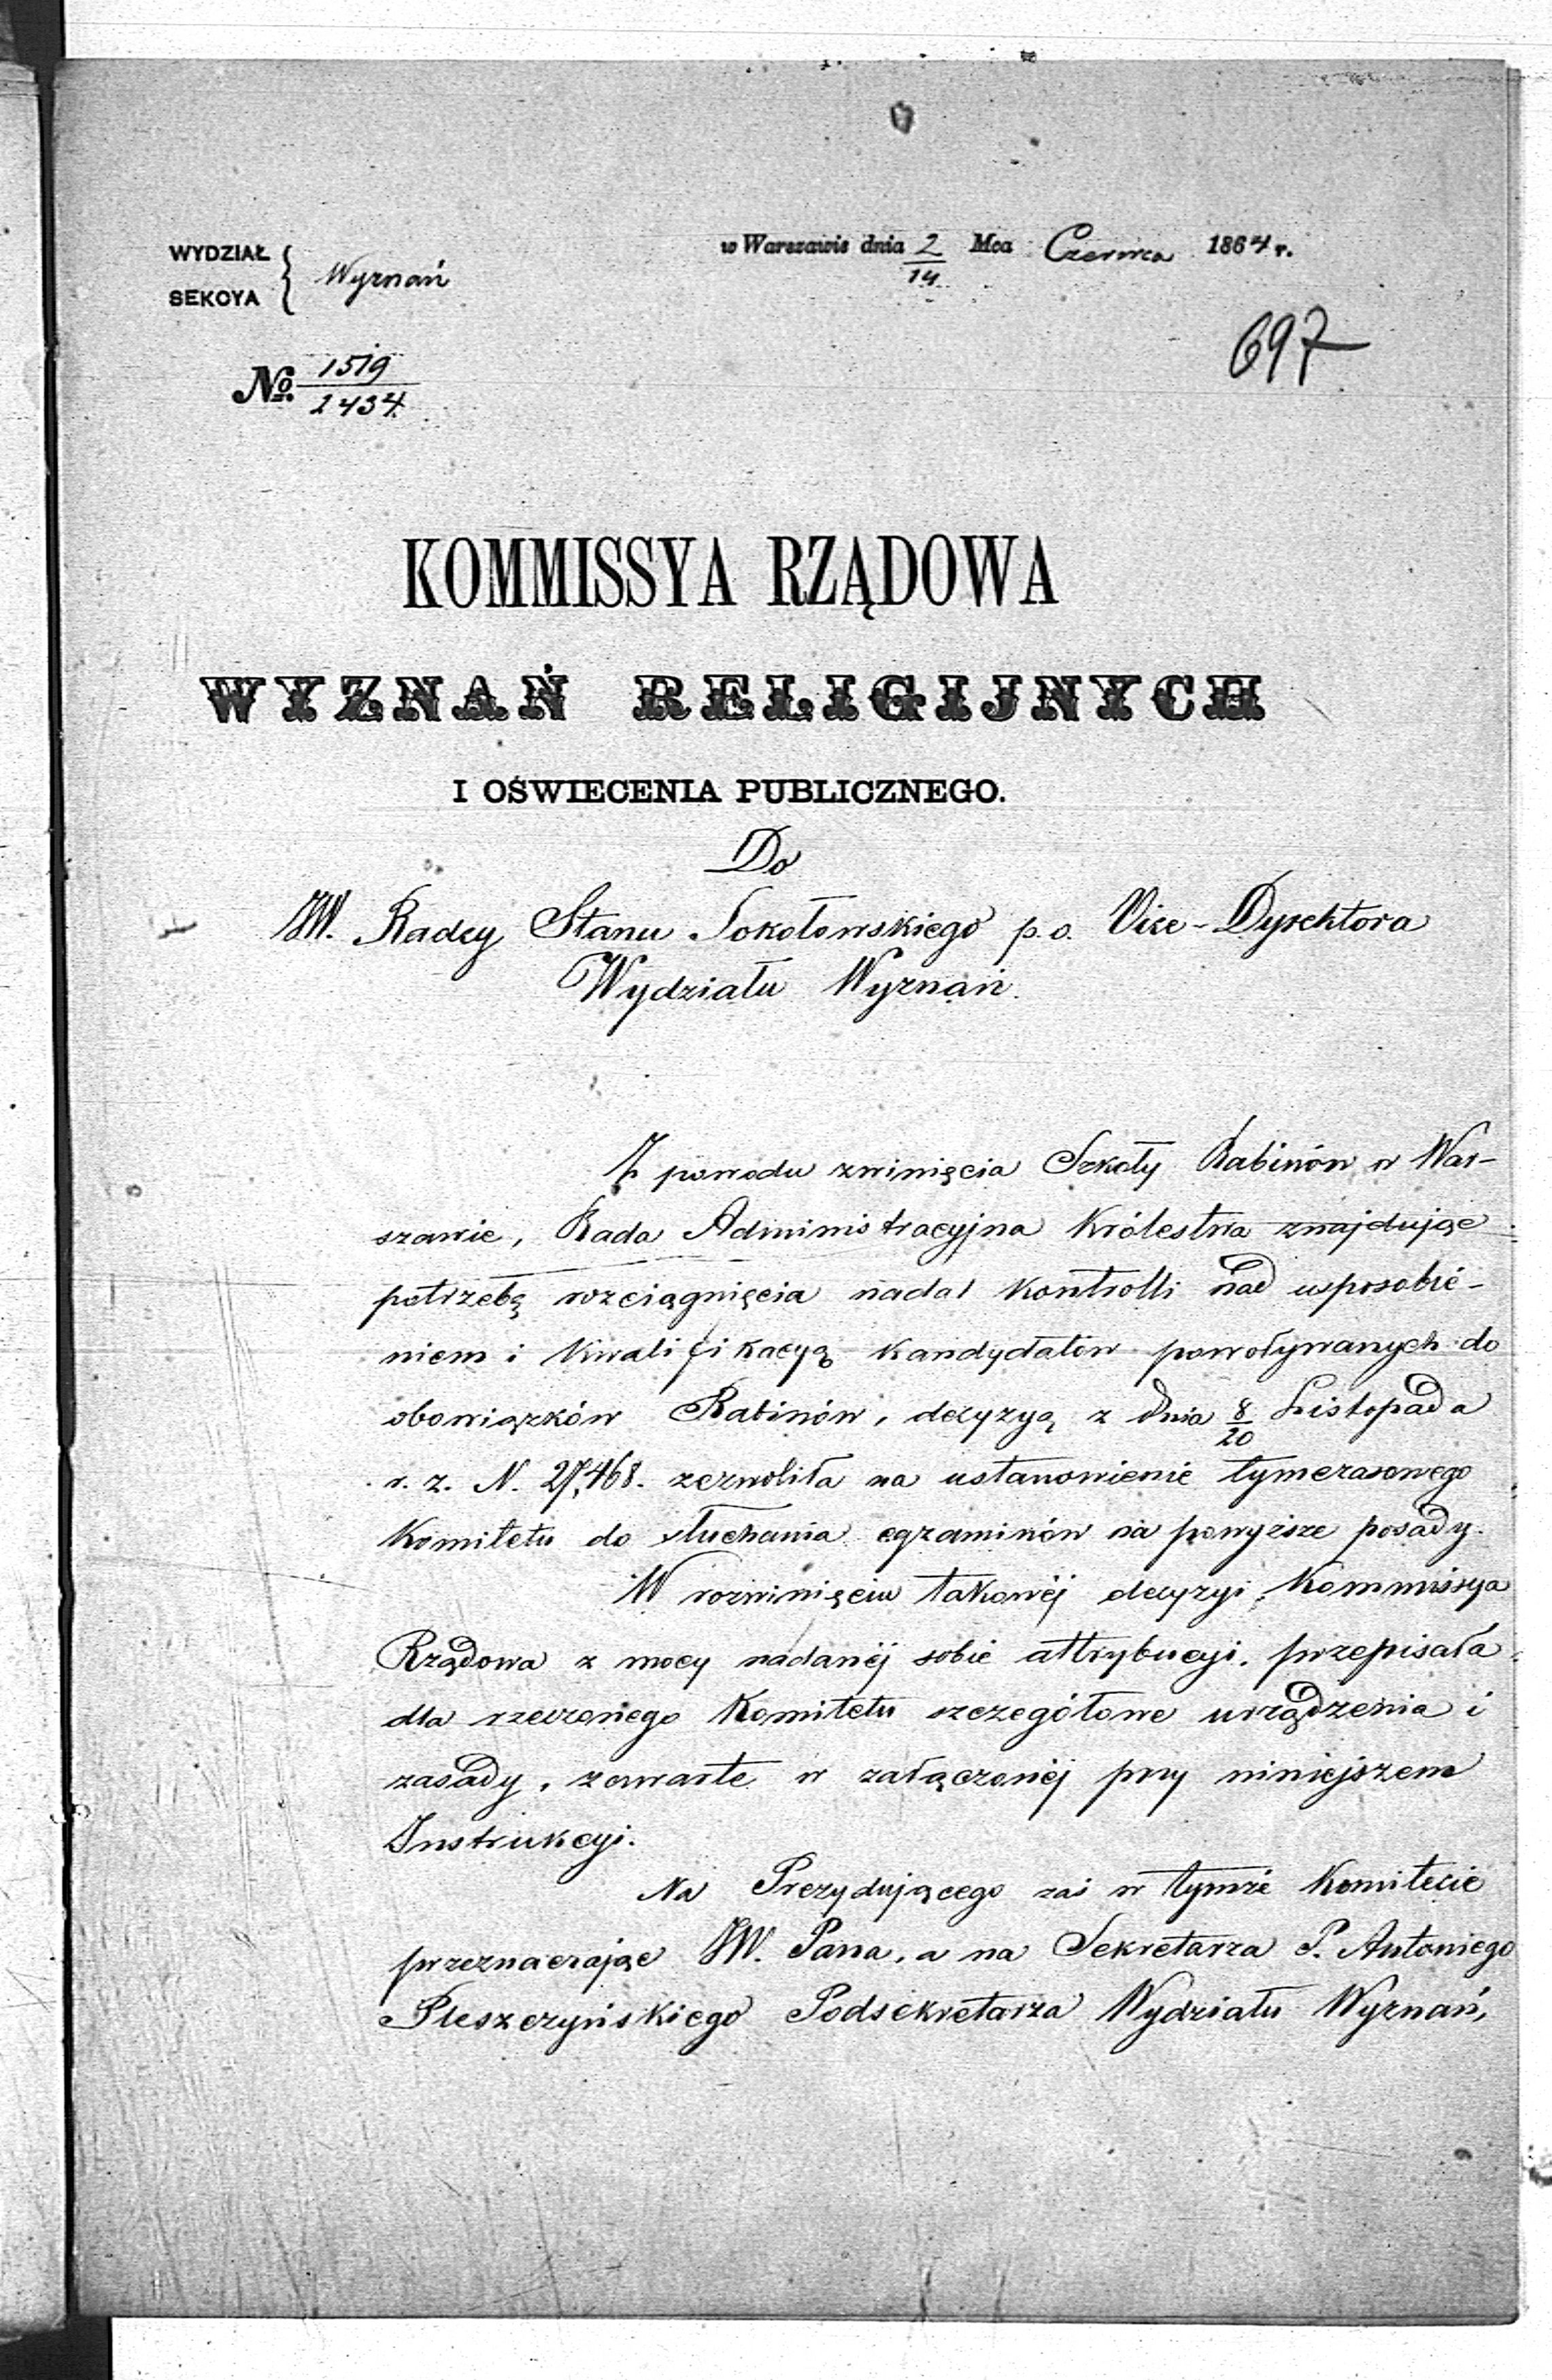 WYDZIAŁ
SEKCYA
Wyznań
w Warszawie dnia 2/14 Mca Czerwca 1864 r.
697
№ 1519/2434.
KOMMISSYA RZĄDOWA
WYZNAŃ RELIGIJNYCH
I OŚWIECENIA PUBLICZNEGO.
Do
JW. Radcy Stanu Sokołowskiego p.o. Vice-Dyrektora
Wydziału Wyznań.
Z powodu zwinięcia Szkoły Rabinów w War-
szawie, Rada Administracyjna Królestwa znajdując
potrzebę rozciągnięcia nadal kontrolli nad usposobie-
niem i kwalifikacyą kandydatów powoływanych do
obowiązków Rabinów, decyzyą z dnia 8/20 Listopada
r. z. N. 27,468. zezwoliła na ustanowienie tymczasowego
Komitetu do słuchania egzaminów na powyższe posady.
W rozwinięciu takowéj decyzyi, Kommissya
Rządowa z mocy nadanéj sobie attrybucyi, przepisała
dla rzeczonego Komitetu szczegółowe urządzenia i
zasady, zawarte w załączonéj przy niniejszem
Instrukcyi.
Na Prezydującego zaś w tymże Komitecie
przeznaczając JW. Pana, a na Sekretarza P. Antoniego
Pleszczyńskiego Podsekretarza Wydziału Wyznań,